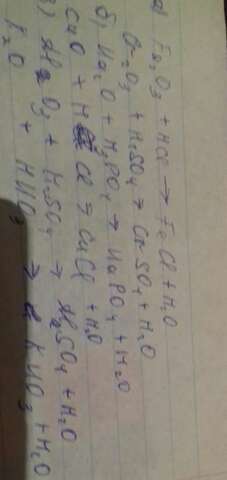 а) Fe2O3 + HCl → FeCl + H2O
Cr2O3 + H2SO4 → CrSO4 + H2O
б) Na2O + H3PO4 → NaPO4 + H2O
CuO + HCl → CuCl + H2O
в) Al2O3 + H2SO4 → Al2SO4 + H2O
K2O + HNO3 → KNO3 + H2O